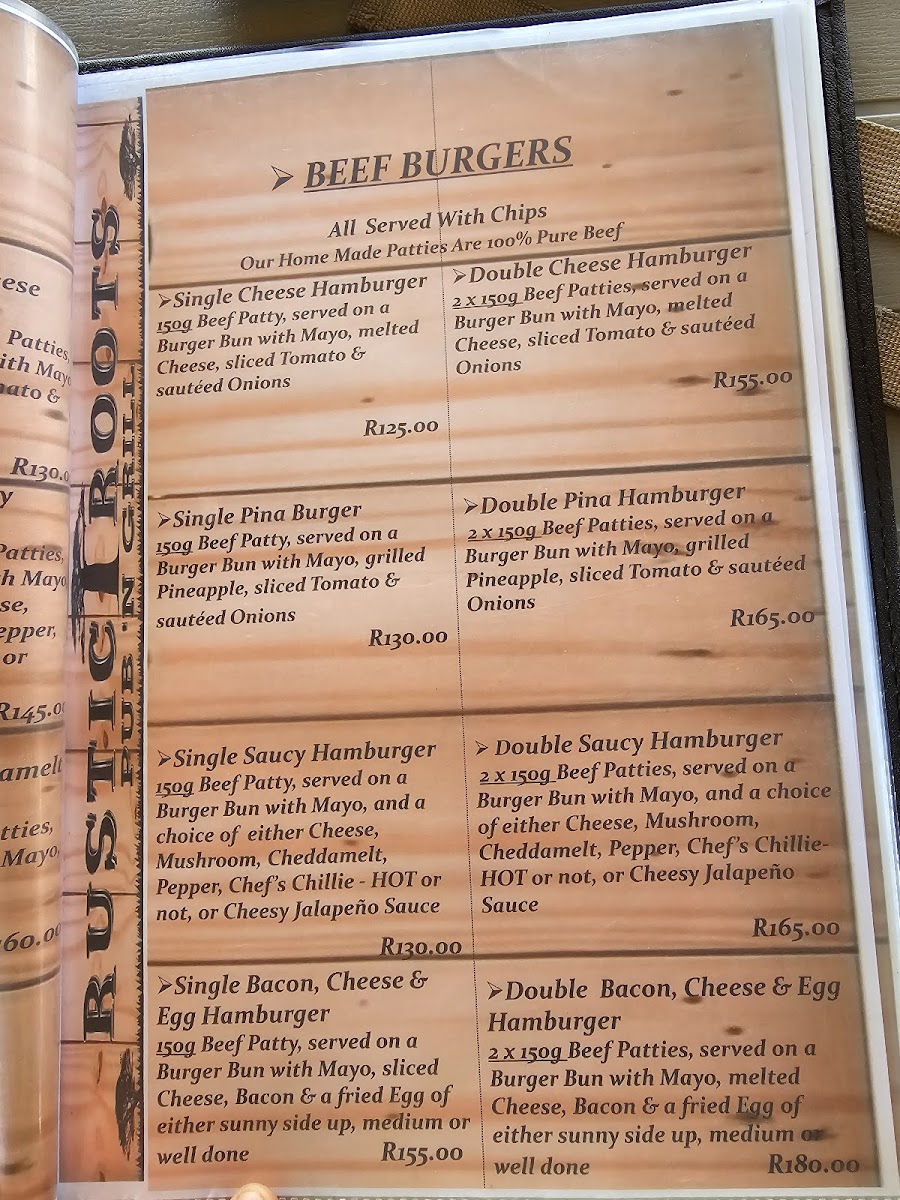 ese
Patties,
ith Mayo
ato &
R130.0
y
Patties,
h Mayo
se,
epper,
or
R145.0
amelt
tties,
Mayo,
60.00
RUSTIC ROOTS
PUB 'N GRILL
➢ BEEF BURGERS
All Served With Chips
Our Home Made Patties Are 100% Pure Beef
➢Single Cheese Hamburger
150g Beef Patty, served on a
Burger Bun with Mayo, melted
Cheese, sliced Tomato &
sautéed Onions
R125.00
➢Double Cheese Hamburger
2 x 150g Beef Patties, served on a
Burger Bun with Mayo, melted
Cheese, sliced Tomato & sautéed
Onions
R155.00
➢Single Pina Burger
150g Beef Patty, served on a
Burger Bun with Mayo, grilled
Pineapple, sliced Tomato &
sautéed Onions
R130.00
➢Double Pina Hamburger
2 x 150g Beef Patties, served on a
Burger Bun with Mayo, grilled
Pineapple, sliced Tomato & sautéed
Onions
R165.00
➢Single Saucy Hamburger
150g Beef Patty, served on a
Burger Bun with Mayo, and a
choice of either Cheese,
Mushroom, Cheddamelt,
Pepper, Chef's Chillie - HOT or
not, or Cheesy Jalapeño Sauce
R130.00
➢ Double Saucy Hamburger
2 x 150g Beef Patties, served on a
Burger Bun with Mayo, and a choice
of either Cheese, Mushroom,
Cheddamelt, Pepper, Chef's Chillie-
HOT or not, or Cheesy Jalapeño
Sauce
R165.00
➢Single Bacon, Cheese &
Egg Hamburger
150g Beef Patty, served on a
Burger Bun with Mayo, sliced
Cheese, Bacon & a fried Egg of
either sunny side up, medium or
well done R155.00
➢Double Bacon, Cheese & Egg
Hamburger
2 x 150g Beef Patties, served on a
Burger Bun with Mayo, melted
Cheese, Bacon & a fried Egg of
either sunny side up, medium or
well done R180.00